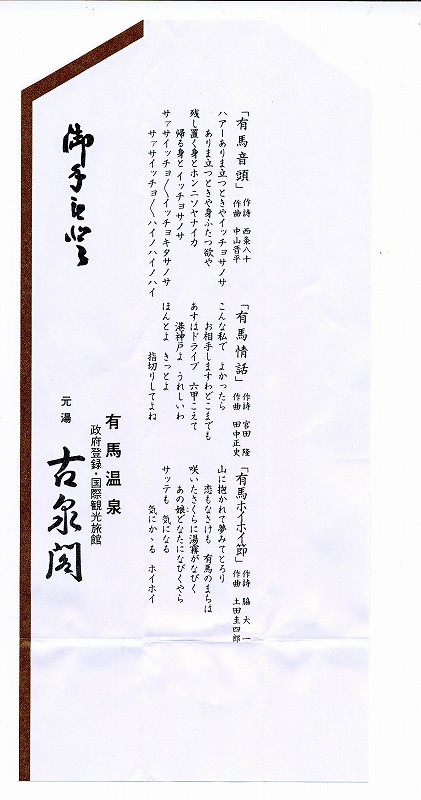 「有馬音頭」 作詩 西条八十
作曲 中山晋平
ハアーありま立つときやイッチョサノサ
ありま立つときや身ふたつ欲や
残し置く身とホンニソヤナイカ
帰る身と イッチョサノサ
サァサイッチョ〳〵イッチョキタサノサ
サァサイッチョ〳〵ハイノハイノハイ
「有馬情話」 作詩 宮田 隆
作曲 田中正史
こんな私で よかったら
お相手しますわどこまでも
あすはドライブ 六甲こえて
港神戸よ うれしいわ
ほんとよ きっとよ
指切りしてよね
「有馬ホイホイ節」 作詩 脇 大一
作曲 土田圭四郎
山に抱かれて夢みてとろり
恋もなさけも 有馬のまちは
咲いたさくらに湯霧がなびく
あの娘どなたになびくやら
サッテも 気になる
気にかゝる ホイホイ
御手
有馬温泉
政府登録・国際観光旅館
元湯 古泉閣